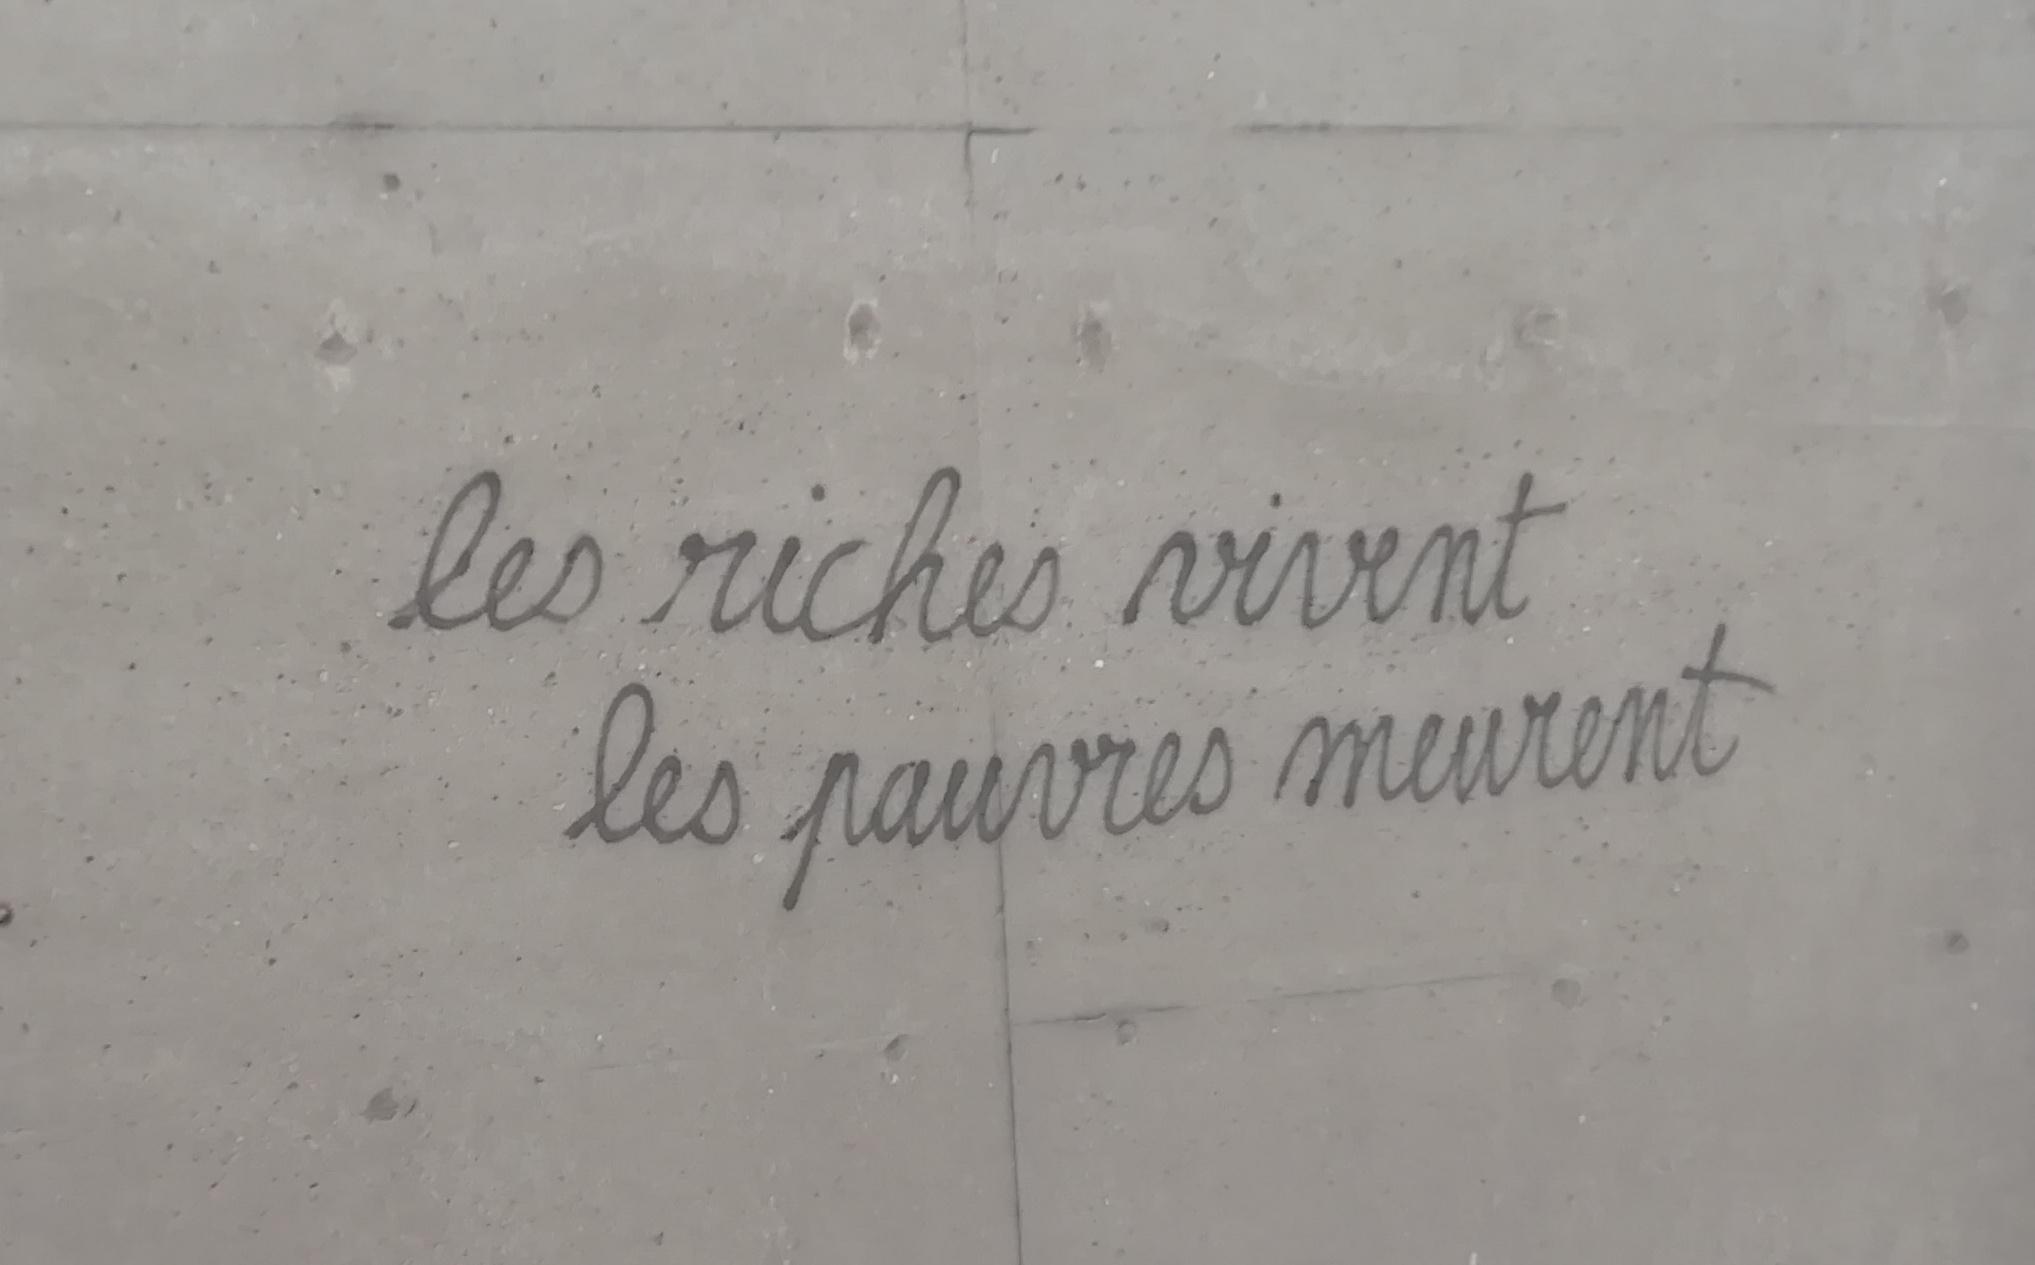 les riches vivent
les pauvres meurent